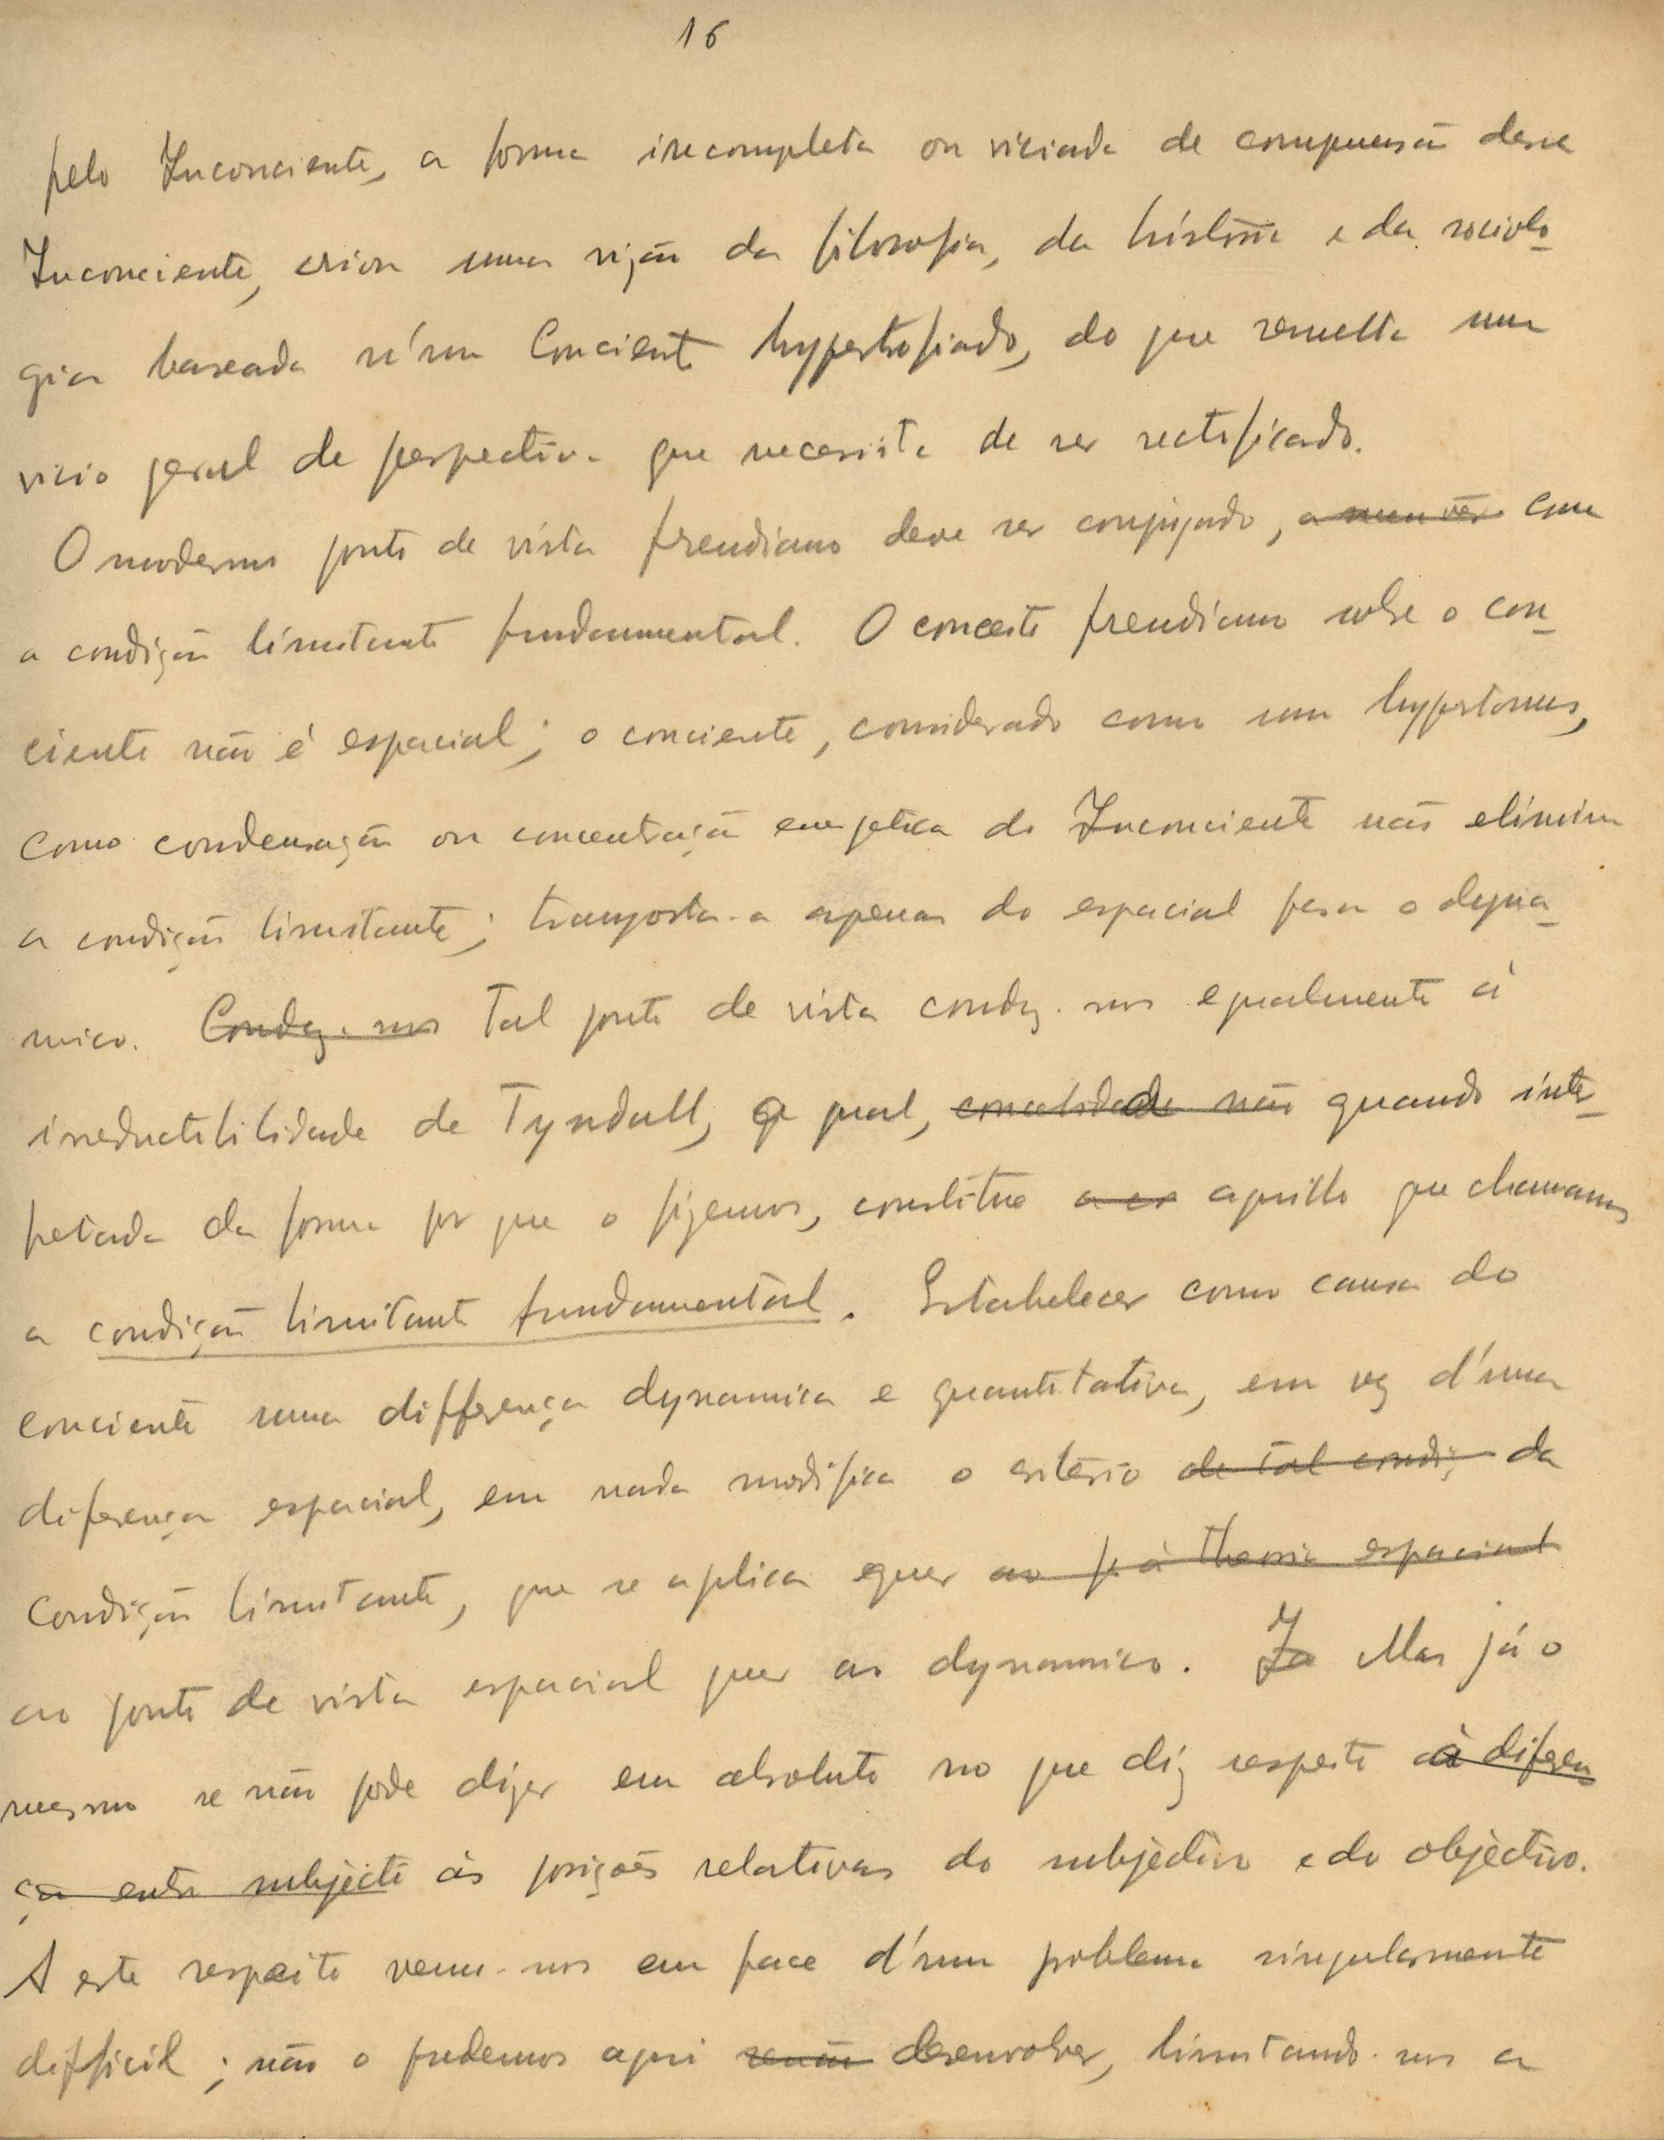 16
pelo Inconciente, a forma incompleta ou viciada de compreensão desse
Inconciente, criou uma visão da filosofia, da história e da sociolo-
gia baseada n'um Conciente hypertrofiado, do que resulta um
vicio geral de perspectiva que necessita de ser rectificado.
O moderno ponto de vista freudiano deve ser conjugado, a meu vêr com
a condição limitante fundamental. O conceito freudiano sobre o con-
ciente não é espacial; o conciente, considerado como um hypertonus,
como condensação ou concentração energetica do Inconciente não elimina
a condição limitante; transporta-a apenas do espacial para o dyna-
mico. Conduz-nos Tal ponto de vista conduz-nos egualmente á
irreductibilidade de Tyndall, a qual, não quando inter-
petada da forma por que o fizemos, constitue aquillo que chamamos
a condição limitante fundamental. Estabelecer como causa do
conciente uma differença dynamica e quantitativa, em vez d'uma
diferença espacial, em nada modifica o criterio de tal condiç da
condição limitante, que se aplica quer ao p. á theoria espacial
ao ponto de vista espacial quer ao dynamico. Ja Mas já o
mesmo se não pode dizer em absoluto no que diz respeito á diferen
ça entre subjecti ás posições relativas do subjectivo e do objectivo.
A este respeito vemo-nos em face d'um problema singularmente
difficil; não o podemos aqui senão desenvolver, limitando-nos a